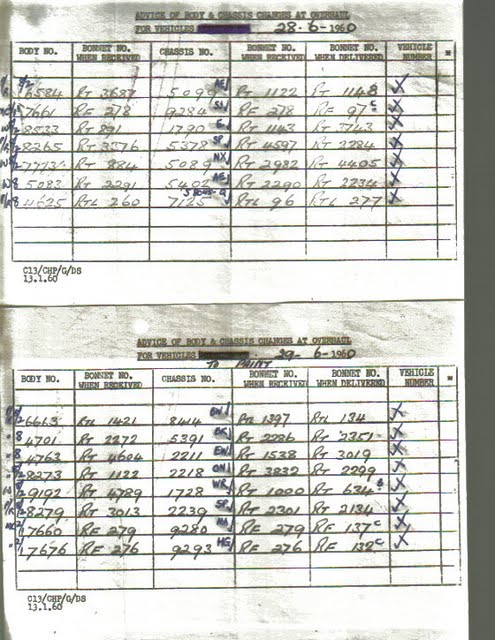 ADVICE OF BODY & CHASSIS CHANGES AT OVERHAUL
FOR VEHICLES 28-6-1960
BODY NO. BONNET NO. WHEN RECEIVED CHASSIS NO. BONNET NO. WHEN RECEIVED BONNET NO. WHEN DELIVERED VEHICLE NUMBER
6584 RT 3687 5099 RT 1122 RT 1148 X
7661 RF 278 9284 RF 278 RF 97 c X
8533 RT 891 1790 RT 1143 RT 3743 X
8265 RT 3576 5378 SP RT 4597 RT 2284 X
7773 RT 884 5089 NX RT 2982 RT 4405 X
W8 5083 RT 2291 5402 RT 2290 RT 2234 X
4625 RTL 260 7125 RTL 96 RTL 277 X
C13/CHP/G/DS
13.1.60
ADVICE OF BODY & CHASSIS CHANGES AT OVERHAUL
FOR VEHICLES 29-6-1960
TO PAINT
BODY NO. BONNET NO. WHEN RECEIVED CHASSIS NO. BONNET NO. WHEN RECEIVED BONNET NO. WHEN DELIVERED VEHICLE NUMBER
6663 RTL 1421 8414 RTL 1397 RTL 134 X
4701 RT 2272 5391 RT 2286 RT 2351 X
4763 RT 4604 2211 RT 1538 RT 3019 X
8273 RT 1122 2218 RT 3832 RT 2299 X
9192 RT 4789 1728 WR RT 1000 RT 634 X
8279 RT 3013 2239 SP RT 2301 RT 2134 X
7660 RF 279 9280 RF 279 RF 137 c X
7676 RF 276 9293 RF 276 RF 132 c X
C13/CHP/G/DS
13.1.60